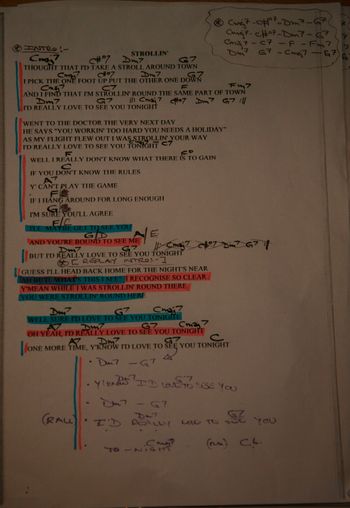 ⊛ Cmaj7 - C#o7 - Dm7 - G7
Cmaj7 - C#o7 - Dm7 - G7
Cmaj7 - C7 - F - Fm7
Dm7 G7 - Cmaj7 - G7
⊛ INTRO:-
STROLLIN'
Cmaj7 C#o7 Dm7 G7
THOUGHT THAT I'D TAKE A STROLL AROUND TOWN
Cmaj7 C#o7 Dm7 G7
I PICK THE ONE FOOT UP PUT THE OTHER ONE DOWN
Cmaj7 C7 F Fm7
AND I FIND THAT I'M STROLLIN' ROUND THE SAME PART OF TOWN
Dm7 G7 Cmaj7 C#o7 Dm7 G7
I'D REALLY LOVE TO SEE YOU TONIGHT
WENT TO THE DOCTOR THE VERY NEXT DAY
HE SAYS "YOU WORKIN' TOO HARD YOU NEEDS A HOLIDAY"
AS MY FLIGHT FLEW OUT I WAS STROLLIN' YOUR WAY
Dm7 G7 C7
I'D REALLY LOVE TO SEE YOU TONIGHT
F
WELL I REALLY DON'T KNOW WHAT THERE IS TO GAIN
C
IF YOU DON'T KNOW THE RULES
A7
Y' CAN'T PLAY THE GAME
IF I HANG AROUND FOR LONG ENOUGH
I'M SURE YOU'LL AGREE
F/C
I'LL MAYBE GET TO SEE YOU
G/D A/E
AND YOU'RE BOUND TO SEE ME
Dm7 G7 Cmaj7 C#o7 Dm7 G7
BUT I'D REALLY LOVE TO SEE YOU TONIGHT
⊛ [REPLAY INTRO:-]
GUESS I'LL HEAD BACK HOME FOR THE NIGHT'S NEAR
AH BUT WHAT'S THIS I SEE I RECOGNISE SO CLEAR
Y'MEAN WHILE I WAS STROLLIN' ROUND THERE
YOU WERE STROLLIN' ROUND HERE
Dm7 G7 Cmaj7
WELL SURE I'D LOVE TO SEE YOU TONIGHT
A7 Dm7 G7 Cmaj7
OH YEAH, I'D REALLY LOVE TO SEE YOU TONIGHT
A7 Dm7 G7 C
ONE MORE TIME, Y'KNOW I'D LOVE TO SEE YOU TONIGHT
• Dm7 - G7
Dm7 G7
• Y'KNOW I'D LOVE TO SEE YOU
• Dm7 - G7
Dm7 G7
(RALL) • I'D REALLY LOVE TO SEE YOU
Cmaj7
• TO - NIGHT